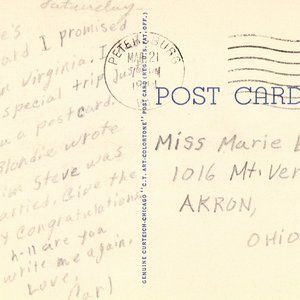 Saturday
e's
ard I promised
Virginia. I
special trip just
u a postcard.
Blondie wrote
Steve was
arried. Give the
Congratulations
h-ll are you
write me again.
Love,
PETERSBURG
MAR 21
POST CARD
GENUINE CURTEICH-CHICAGO "C.T. ART-COLORTONE" POST CARD (REG. U.S. PAT. OFF.)
Miss Marie
1016 Mt. Ver
AKRON,
OHIO